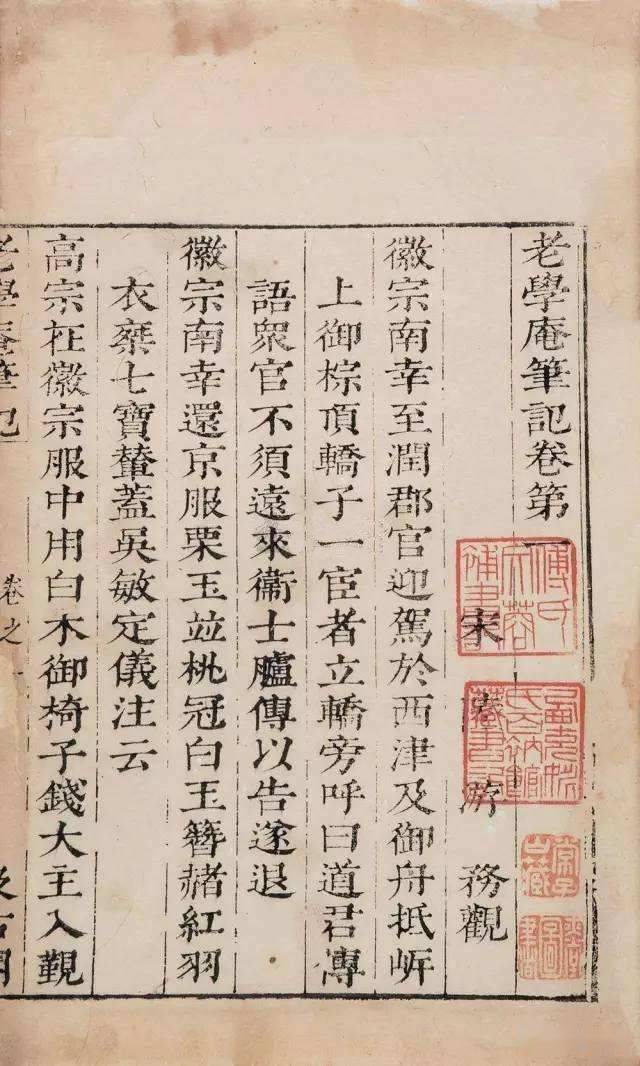 老學庵筆記卷第一
宋 陸游 務觀
徽宗南幸至潤郡官迎駕於西津及御舟抵岸
上御棕頂轎子一宦者立轎旁呼曰道君傳
語衆官不須遠來衞士臚傳以告遂退
徽宗南幸還京服栗玉並桃冠白玉簪赭紅羽
衣椉七寶輦蓋吳敏定儀注云
高宗在徽宗服中用白木御椅子錢大主入覲
老學庵筆記 卷之一